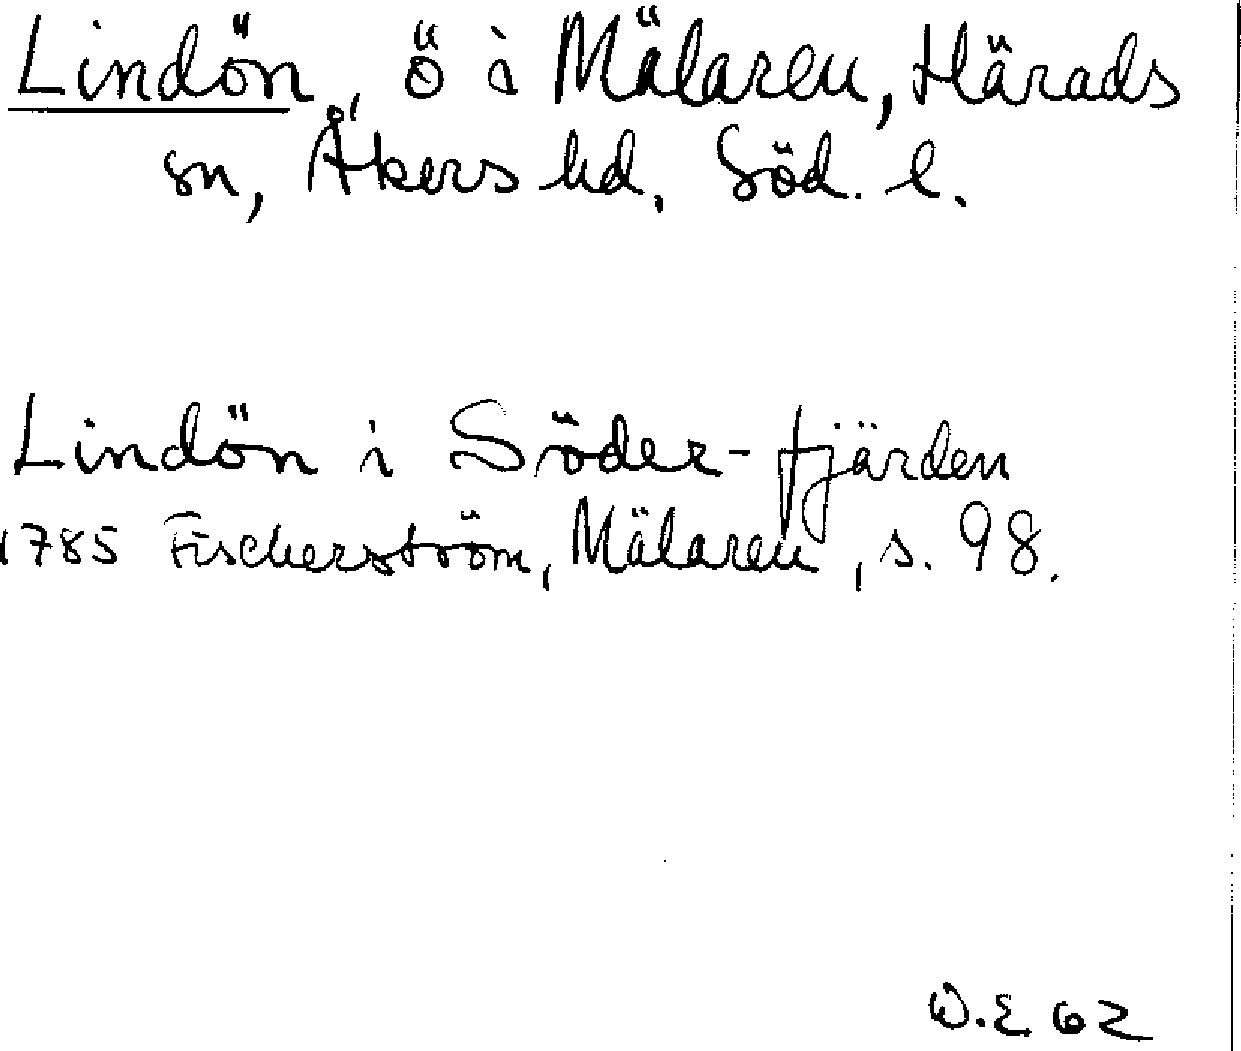 Lindön, ö i Mälaren, Härads
sn, Åkers hd, Söd. l.
Lindön i Söder-fjärden
1785 Fischerström, Mälaren, s. 98.
O.E 62